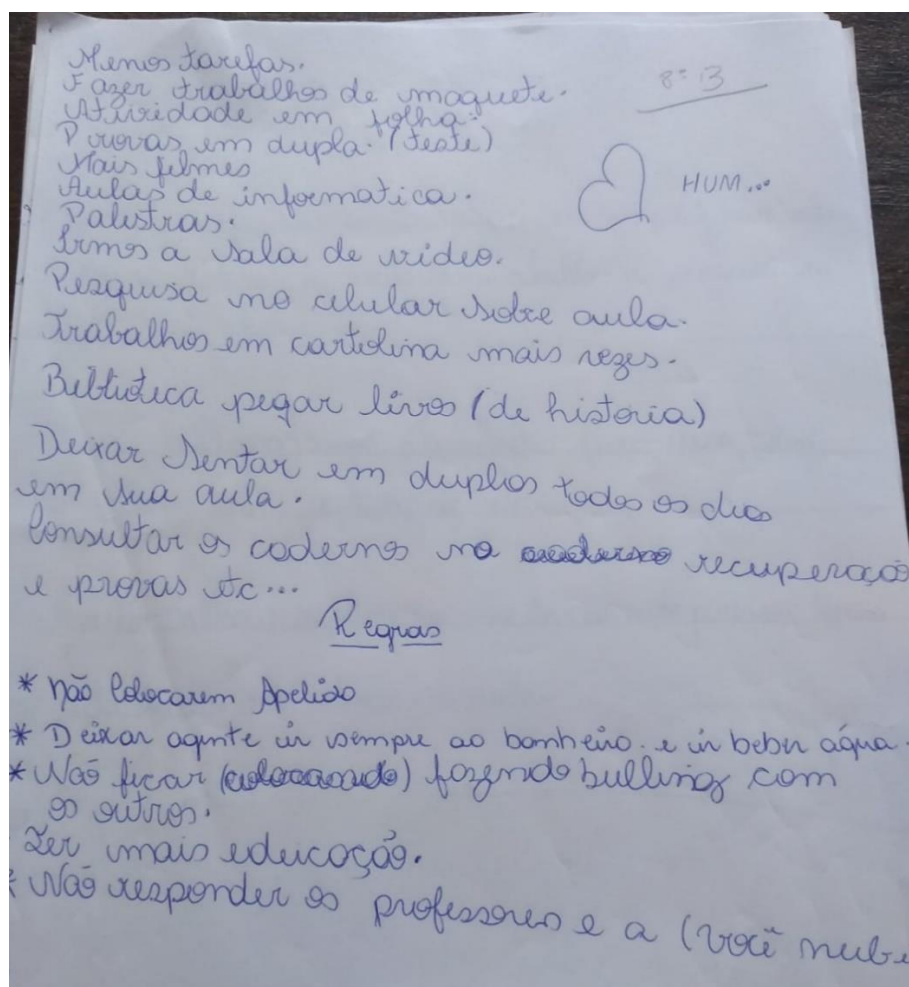 Menos tarefas.
8º 13
Fazer trabalhos de maquete.
Atividade em folha.
Provas em dupla. (teste)
Mais filmes
HUM...
Aulas de informatica.
Palistras.
Irmos a sala de video.
Pesquisa no celular sobre aula.
Trabalhos em cartolina mais vezes.
Biblioteca pegar livros (de historia)
Deixar sentar em duplas todos os dias
em sua aula.
Consultar os cadernos na recuperação
e provas etc...
Regras
* Não Colocarem Apelido
* Deixar agente ir sempre ao banheiro. e ir beber água.
* Não ficar (colocando) fazendo bulling com
os outros.
Ter mais educação.
* Não responder os professores e a (você